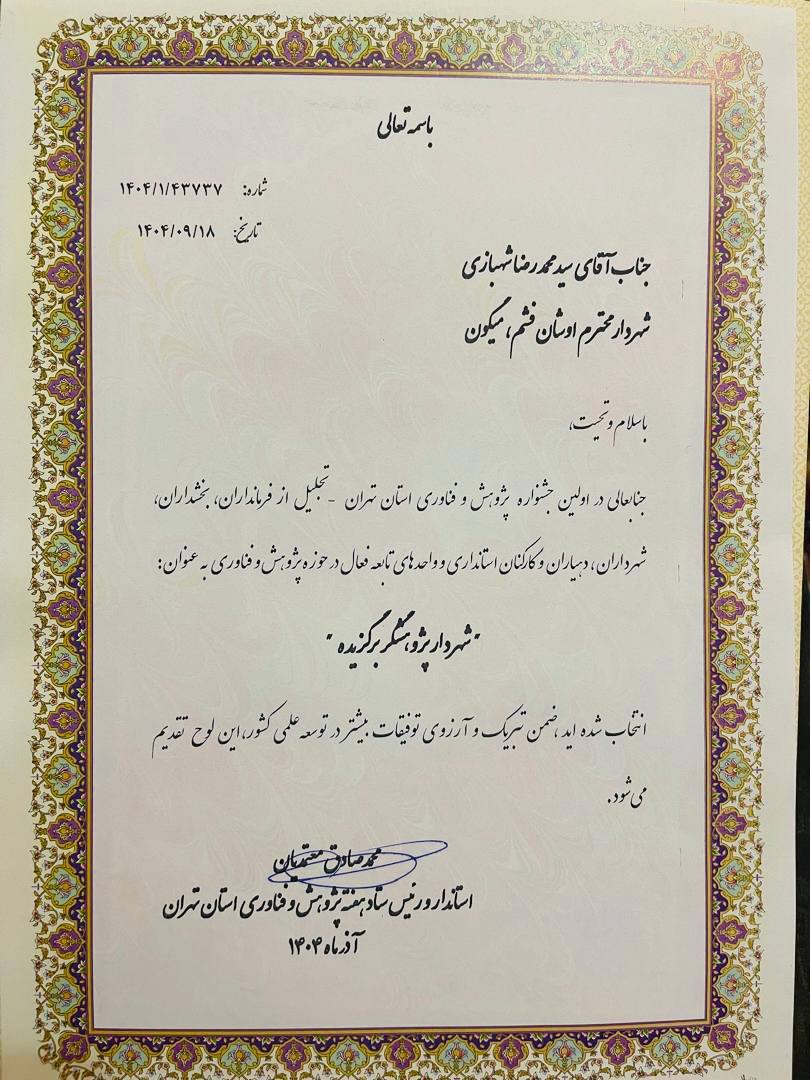 باسمه تعالی
شماره: ۱۴۰۴/۱/۴۳۷۳۷
تاریخ: ۱۴۰۴/۰۹/۱۸
جناب آقای سید محمدرضا شهبازی
شهردار محترم اوشان فشم، میگون
باسلام و تحیت،
جنابعالی در اولین جشنواره پژوهش و فناوری استان تهران - تجلیل از فرمانداران، بخشداران،
شهرداران، دهیاران و کارکنان استانداری و واحدهای تابعه فعال در حوزه پژوهش و فناوری به عنوان:
"شهردار پژوهشگر برگزیده"
انتخاب شده اید، ضمن تبریک و آرزوی توفیقات بیشتر در توسعه علمی کشور، این لوح تقدیم
می شود.
محمدصادق معتمدیان
استاندار و رئیس ستاد هفته پژوهش و فناوری استان تهران
آذرماه ۱۴۰۴